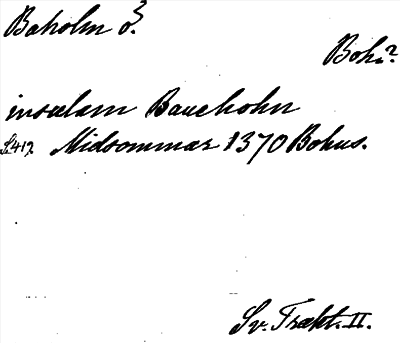 Baholm ö?
Boh.?
insulam Baueholm
S. 417. Midsommar 1370 Bohus.
Sv. Trakt. II.